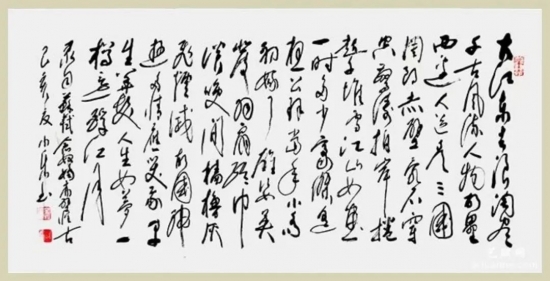 大江东去浪淘尽
千古风流人物故垒
西边人道是三国
周郎赤壁乱石穿
空惊涛拍岸卷
起千堆雪江山如画
一时多少豪杰遥
想公瑾当年小乔
初嫁了雄姿英
发羽扇纶巾
谈笑间樯橹灰
飞烟灭故国神
游多情应笑我早
生华发人生如梦一
樽还酹江月
录自苏轼念奴娇赤壁怀古
己亥夏小